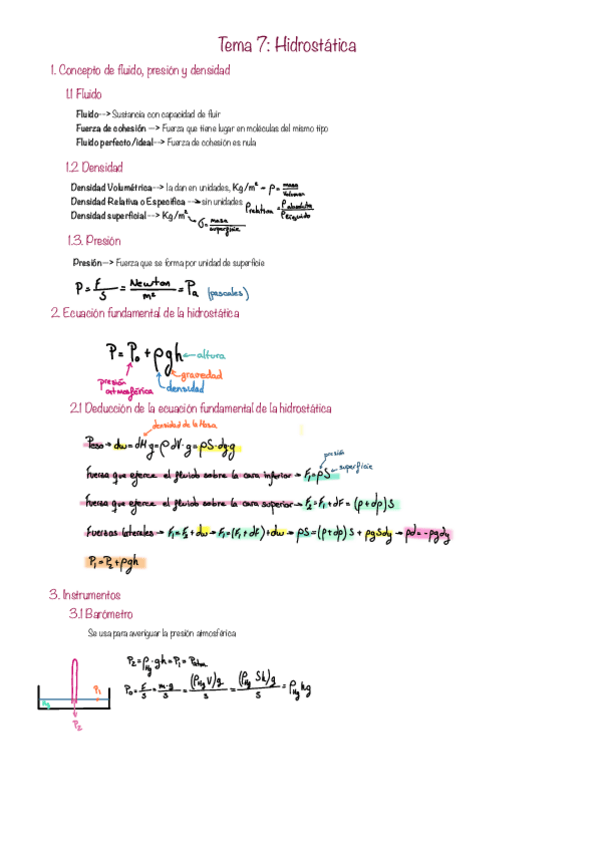 Tema 7: Hidrostática
1. Concepto de fluido, presión y densidad
1.1 Fluido
Fluido--> Sustancia con capacidad de fluir
Fuerza de cohesión --> Fuerza que tiene lugar en moléculas del mismo tipo
Fluido perfecto/ideal--> Fuerza de cohesión es nula
1.2 Densidad
Densidad Volumétrica--> la dan en unidades, Kg/m³ - ρ = masa/volumen
Densidad Relativa o Específica --> sin unidades ρrelativa = ρabsoluta/
Densidad superficial--> Kg/m² σ = masa/superficie
1.3. Presión
Presión--> Fuerza que se forma por unidad de superficie
P = F/S = Newton/m² = Pa (pascales)
2. Ecuación fundamental de la hidrostática
P = P₀ + ρgh ← altura
gravedad
presión atmosférica
densidad
2.1 Deducción de la ecuación fundamental de la hidrostática
densidad de la Masa
Peso → dw = dM g = ρ dV · g = ρS · dy g
presión
superficie
Fuerza que ejerce el fluido sobre la cara inferior → F₁ = pS
Fuerza que ejerce el fluido sobre la cara superior → F₂ = F₁ + dF = (p + dp) S
Fuerzas laterales → F₁ = F₂ + dw → F₁ = (F₁ + dF) + dw → pS = (p + dp) S + ρgSdy → pd = -ρgdy
P₁ = P₂ + ρgh
3. Instrumentos
3.1 Barómetro
Se usa para averiguar la presión atmosférica
P₂ = ρHg · gh = P₁ = Patm
P₀ = F/S = m·g/S = (ρHg V)g/S = (ρHg Sh)g/S = ρHg hg
P₁
Hg
P₂